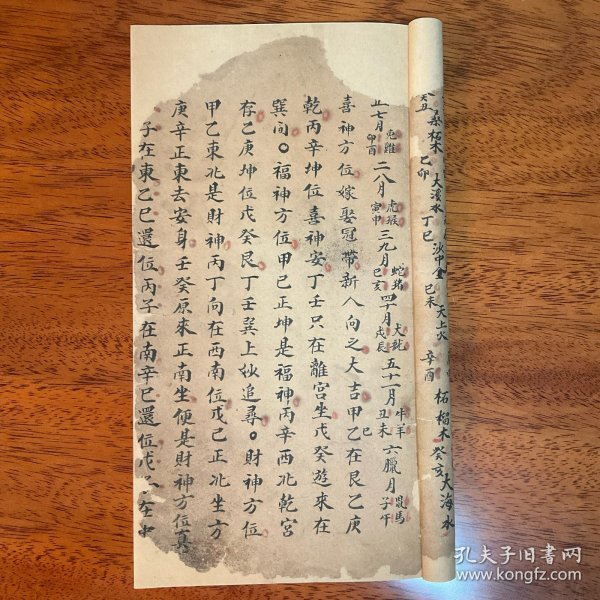 丑桑柘木乙卯大溪水丁巳沙中金己未天上火辛酉柘榴木癸亥大海水
正七月兔雞卯酉二八月虎猴寅申三九月蛇猪巳亥四十月犬龍戌辰五十一月牛羊丑未六臘月鼠馬子午
喜神方位嫁娶冠帶新人向之大吉甲乙在艮乙庚
巳
乾丙辛坤位喜神安丁壬只在離宮坐戊癸遊來在
巽间。福神方位甲己正坤是福神丙辛西北乾宮
存乙庚坤位戊癸艮丁壬巽上妙追尋。財神方位
甲乙東北是財神丙丁向在西南位戊己正北坐方
庚辛正東去安身壬癸原來正南坐便是財神方位真
子在東乙巳還位丙子在南辛巳還位戊子在中
孔夫子旧书网
www.kongfz.com